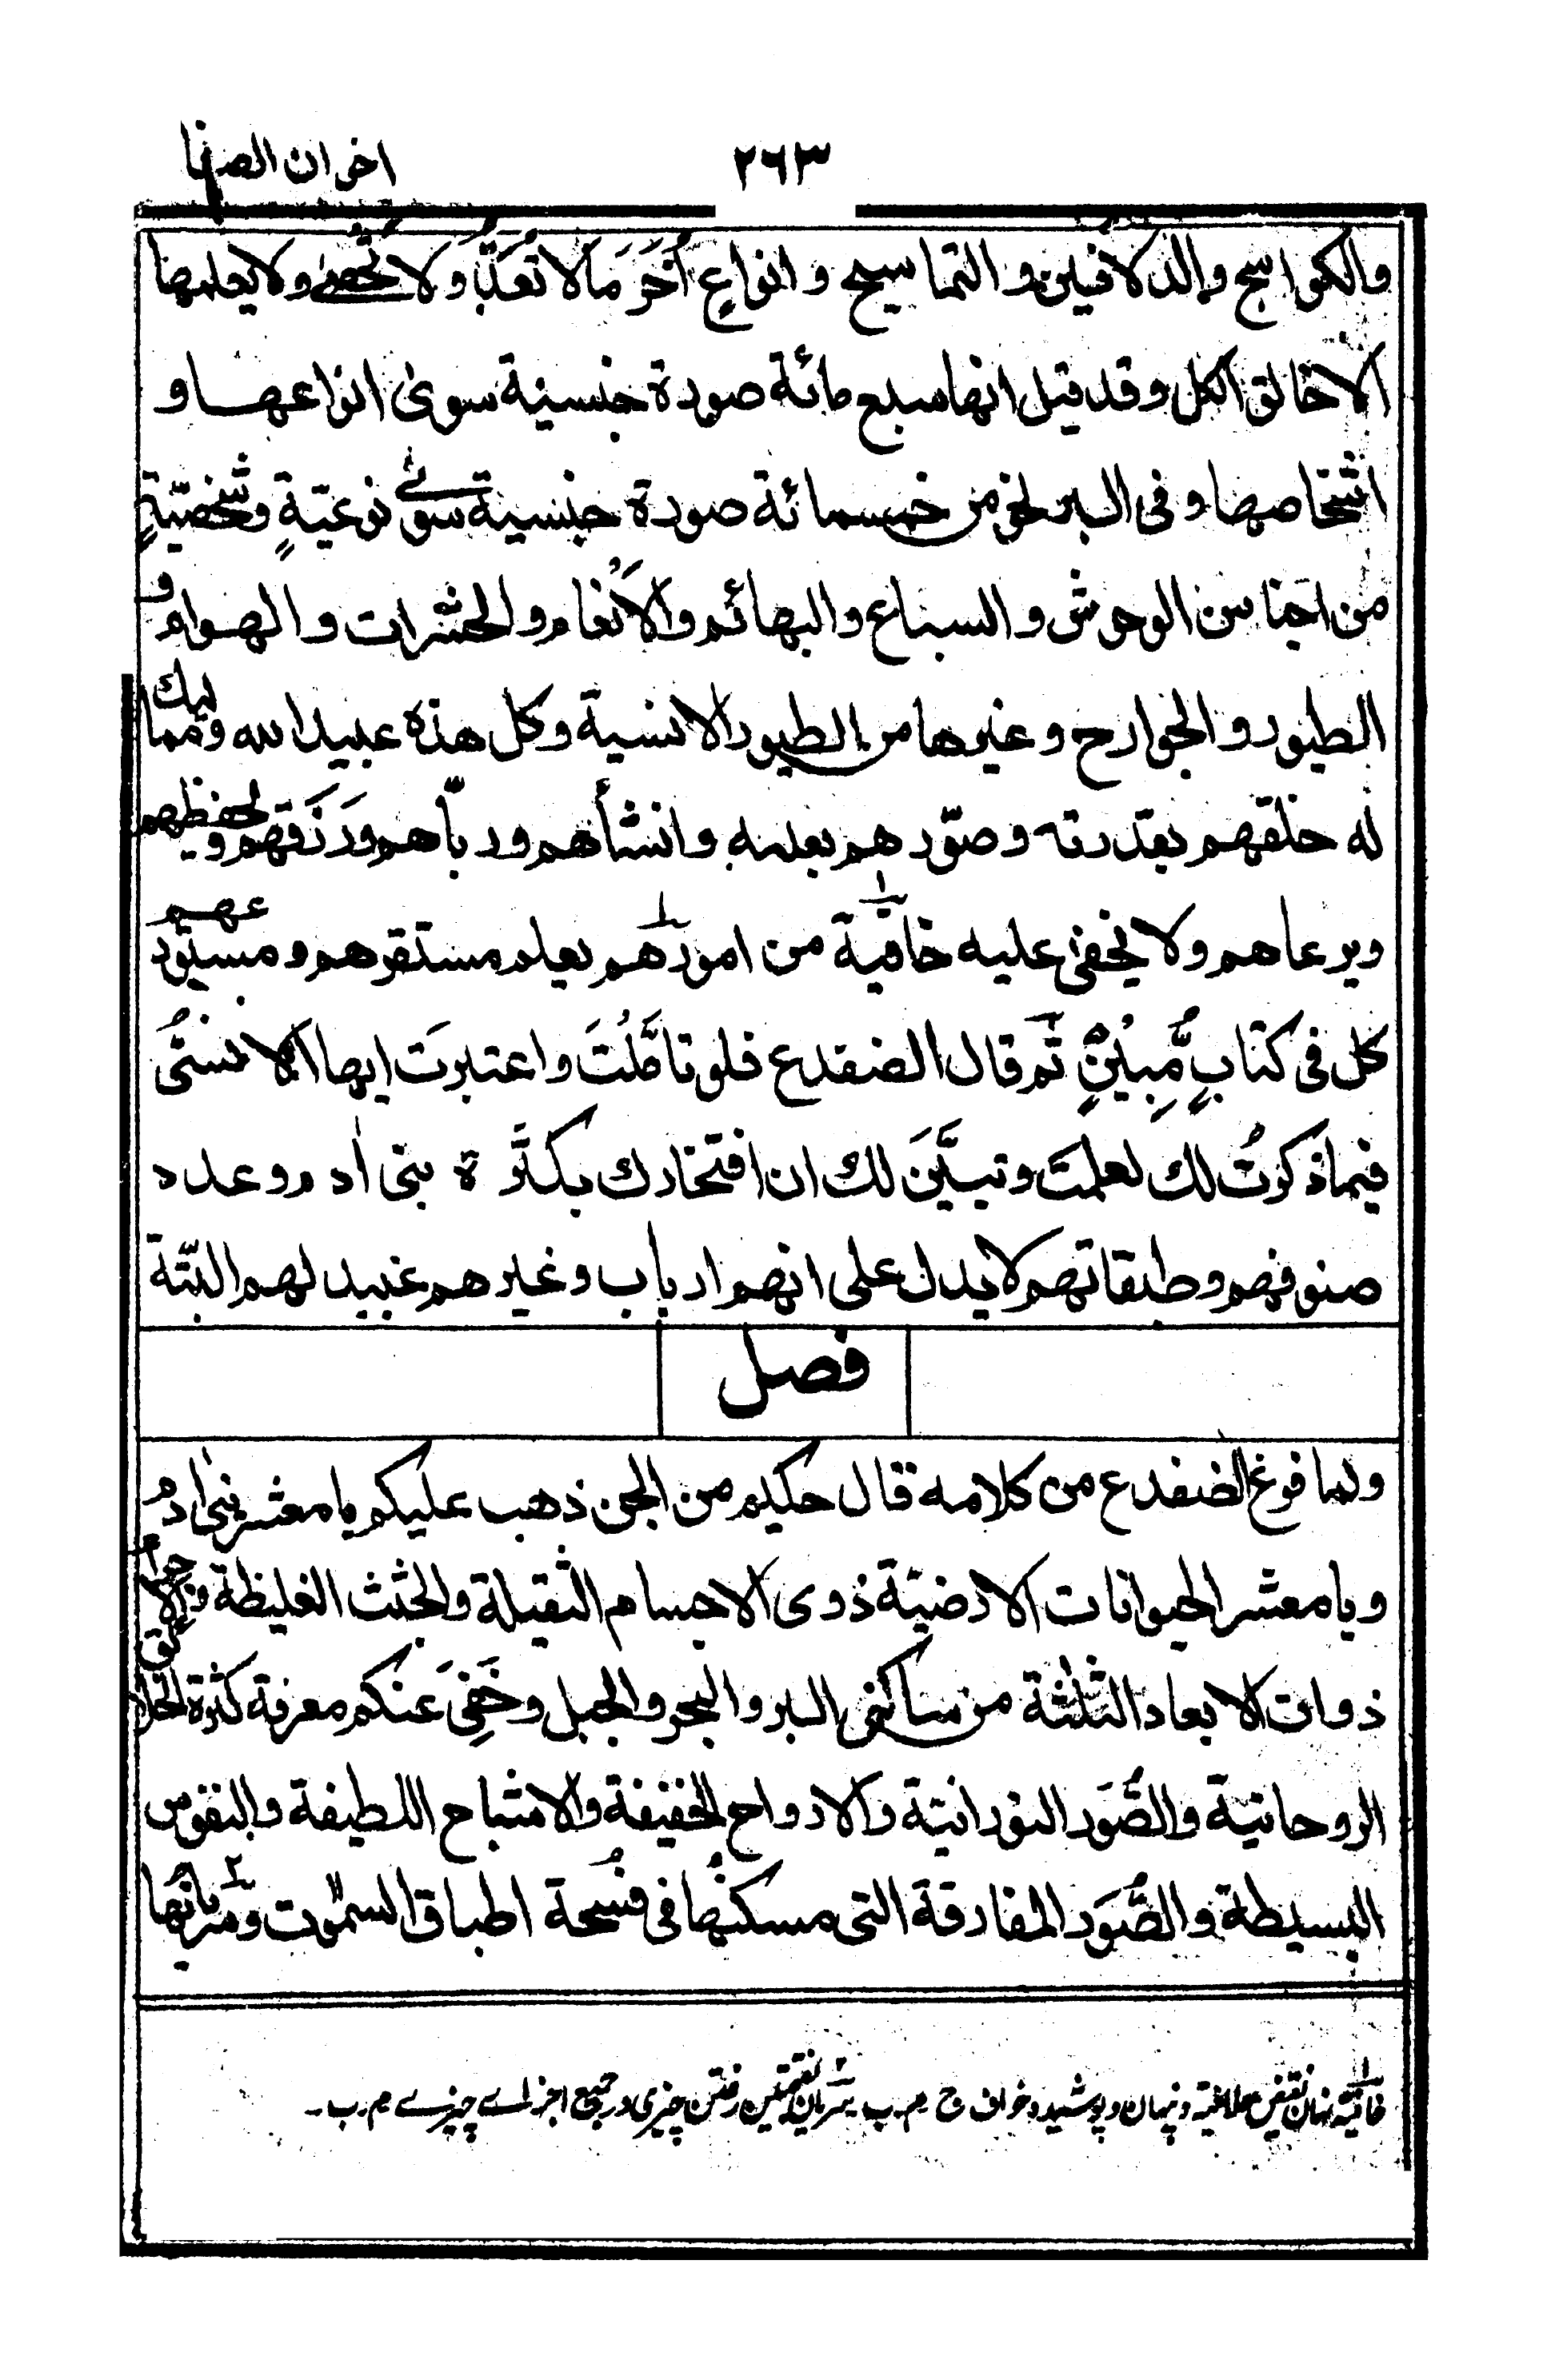 ٢٦٣
اخوان الصفا
والكواسج والدلافين والتماسيح وانواعٍ اُخَرَ مَا لا تُعَدُّ وَلا تُحصٰى ولا يعلمها
الا خالق الكل وقد قيل انها سبع مائة صورة جنسية سوىٰ انواعها و
اشخاصها وفى البر نحو من خمسمائة صورة جنسية سوىٰ نوعيّةٍ وشخصيّةٍ
من اجناس الوحوش والسباع والبهائم والاَنْعَام والحشرات والهوام و
الطيور والجوارح وغيرها من الطيور الانسية وكل هذه عبيد الله ومماليك
له خلقهم بقدرته وصوّرهم بعلمه وانشأهم وربّاهم ورَزَقهم ويحفظهم
ويرعاهم ولا يخفىٰ عليه خافية من امورهم يعلم مستقرهم ومستودعهم
كل فى كتابٍ مُّبِيْنٍ ثم قال الضفدع فلو تأمَّلْتَ واعتبرتَ ايها الانسىُّ
فيما ذكرتُ لك لعلمتَ وتبيَّنَ لك ان افتخارك بكثرة بنى اٰدم وعدد
صنوفهم وطبقاتهم لا يدل على انهم ارباب وغيرهم عبيد لهم البتّة
فصل
ولما فرغ الضفدع من كلامه قال حكيم من الجن ذهب عليكم يا معشر بنى اٰدم
ويا معشر الحيوانات الارضيّة ذوى الاجسام الثقيلة والجثث الغليظة والاجرام
ذوات الابعاد الثلٰثة من ساكنى البر والبحر والجبل وخَفِىَ عنكم معرفة كثرة الخلائق
الروحانية والصُّوَر النورانيّة والارواح الخفيفة والاشباح اللطيفة والنفوس
البسيطة والصُّوَر المفارقة التى مسكنُها فى فُسْحة اطباق السمٰوت وسَرَيانُها
خافية نهان نقيض علانية ونهان وپوشيده خواف ج م ـ ب سَرَيان بفتحتين رفتن چيزى در جميع اجزاے چيزے م ـ ب ـ